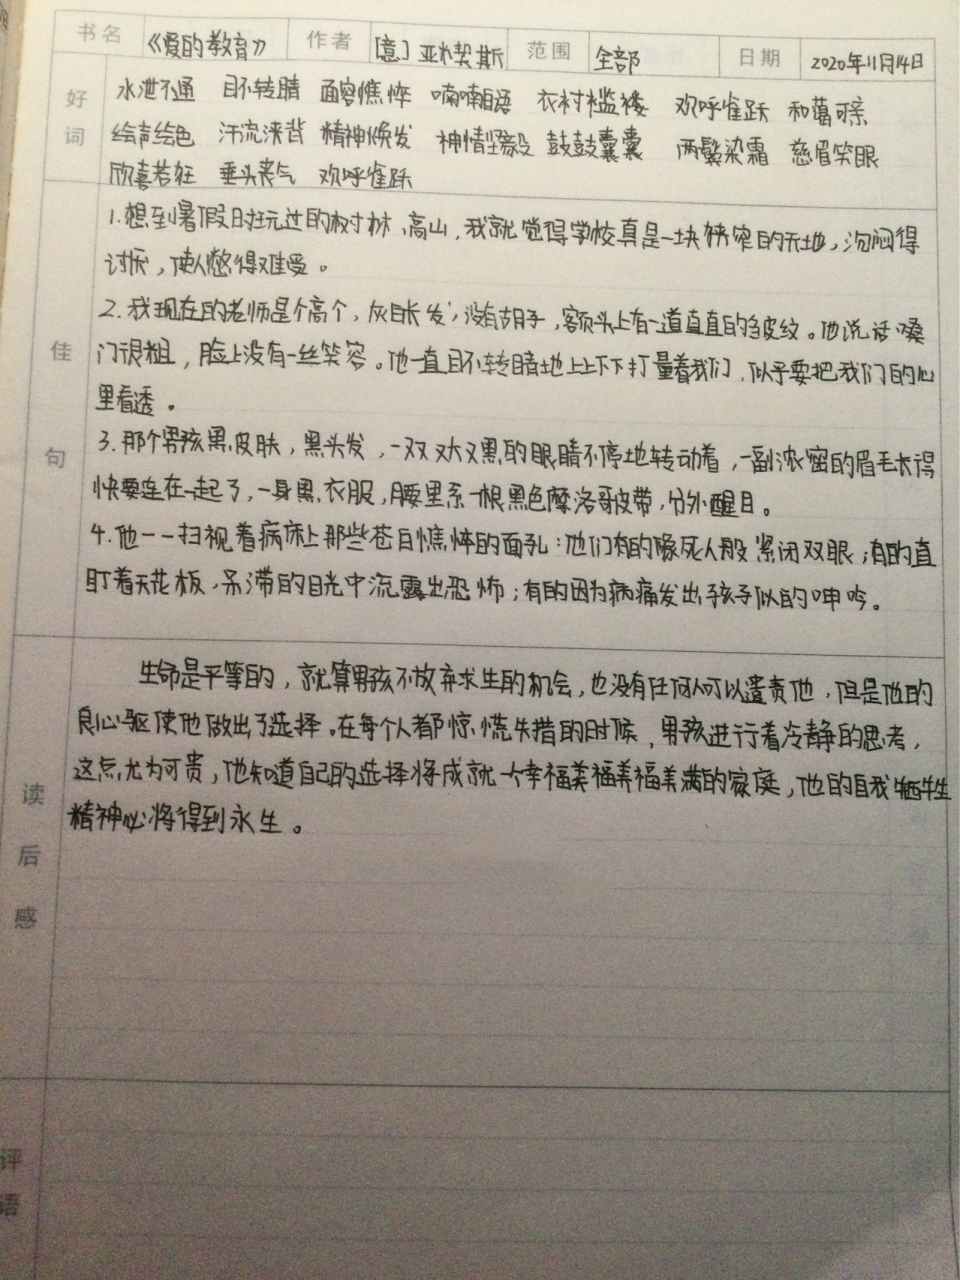 书名 《爱的教育》 作者 [意]亚米契斯 范围 全部 日期 2020年11月14日
好词
水泄不通 目不转睛 面容憔悴 喃喃自语 衣衬褴褛 欢呼雀跃 和蔼可亲
绘声绘色 汗流浃背 精神焕发 神情坚毅 鼓鼓囊囊 两鬓染霜 慈眉笑眼
欣喜若狂 垂头丧气 欢呼雀跃
佳句
1.想到暑假日时玩过的树林、高山,我就觉得学校真是一块狭窄的天地,沉闷得
讨厌,使人憋得难受。
2.我现在的老师是个高个,灰白长发,没有胡子,额头上有一道直直的皱纹。他说话嗓
门很粗,脸上没有一丝笑容。他一直目不转睛地上上下下打量着我们,似乎要把我们的心
里看透。
3.那个男孩黑皮肤,黑头发,一双又大又黑的眼睛不停地转动着,一副浓密的眉毛长得
快要连在一起了,一身黑衣服,腰里系一根黑色摩洛哥皮带,分外醒目。
4.他一一扫视着病床上那些苍白憔悴的面孔:他们有的像死人般紧闭双眼;有的直
盯着天花板,呆滞的目光中流露出恐怖;有的因为病痛发出孩子似的呻吟。
读后感
生命是平等的,就算男孩不放弃求生的机会,也没有任何人可以遣责他,但是他的
良心驱使他做出了选择。在每个人都惊慌失措的时候,男孩进行着冷静的思考,
这点尤为可贵,他知道自己的选择将成就一个幸福美福美福美满的家庭,他的自我牺牲
精神必将得到永生。
评语